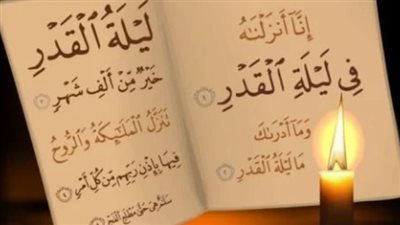 إِنَّآ أَنزَلْنَـٰهُ
فِى لَيْلَةِ ٱلْقَدْرِ ١
وَمَآ أَدْرَىٰكَ
مَا لَيْلَةُ ٱلْقَدْرِ ٢
لَيْلَةُ ٱلْقَدْرِ
خَيْرٌ مِّنْ أَلْفِ شَهْرٍ ٣
تَنَزَّلُ ٱلْمَلَـٰٓئِكَةُ وَٱلرُّوحُ
فِيهَا بِإِذْنِ رَبِّهِم مِّن كُلِّ أَمْرٍ ٤
سَلَـٰمٌ هِىَ حَتَّىٰ مَطْلَعِ ٱلْفَجْرِ ٥